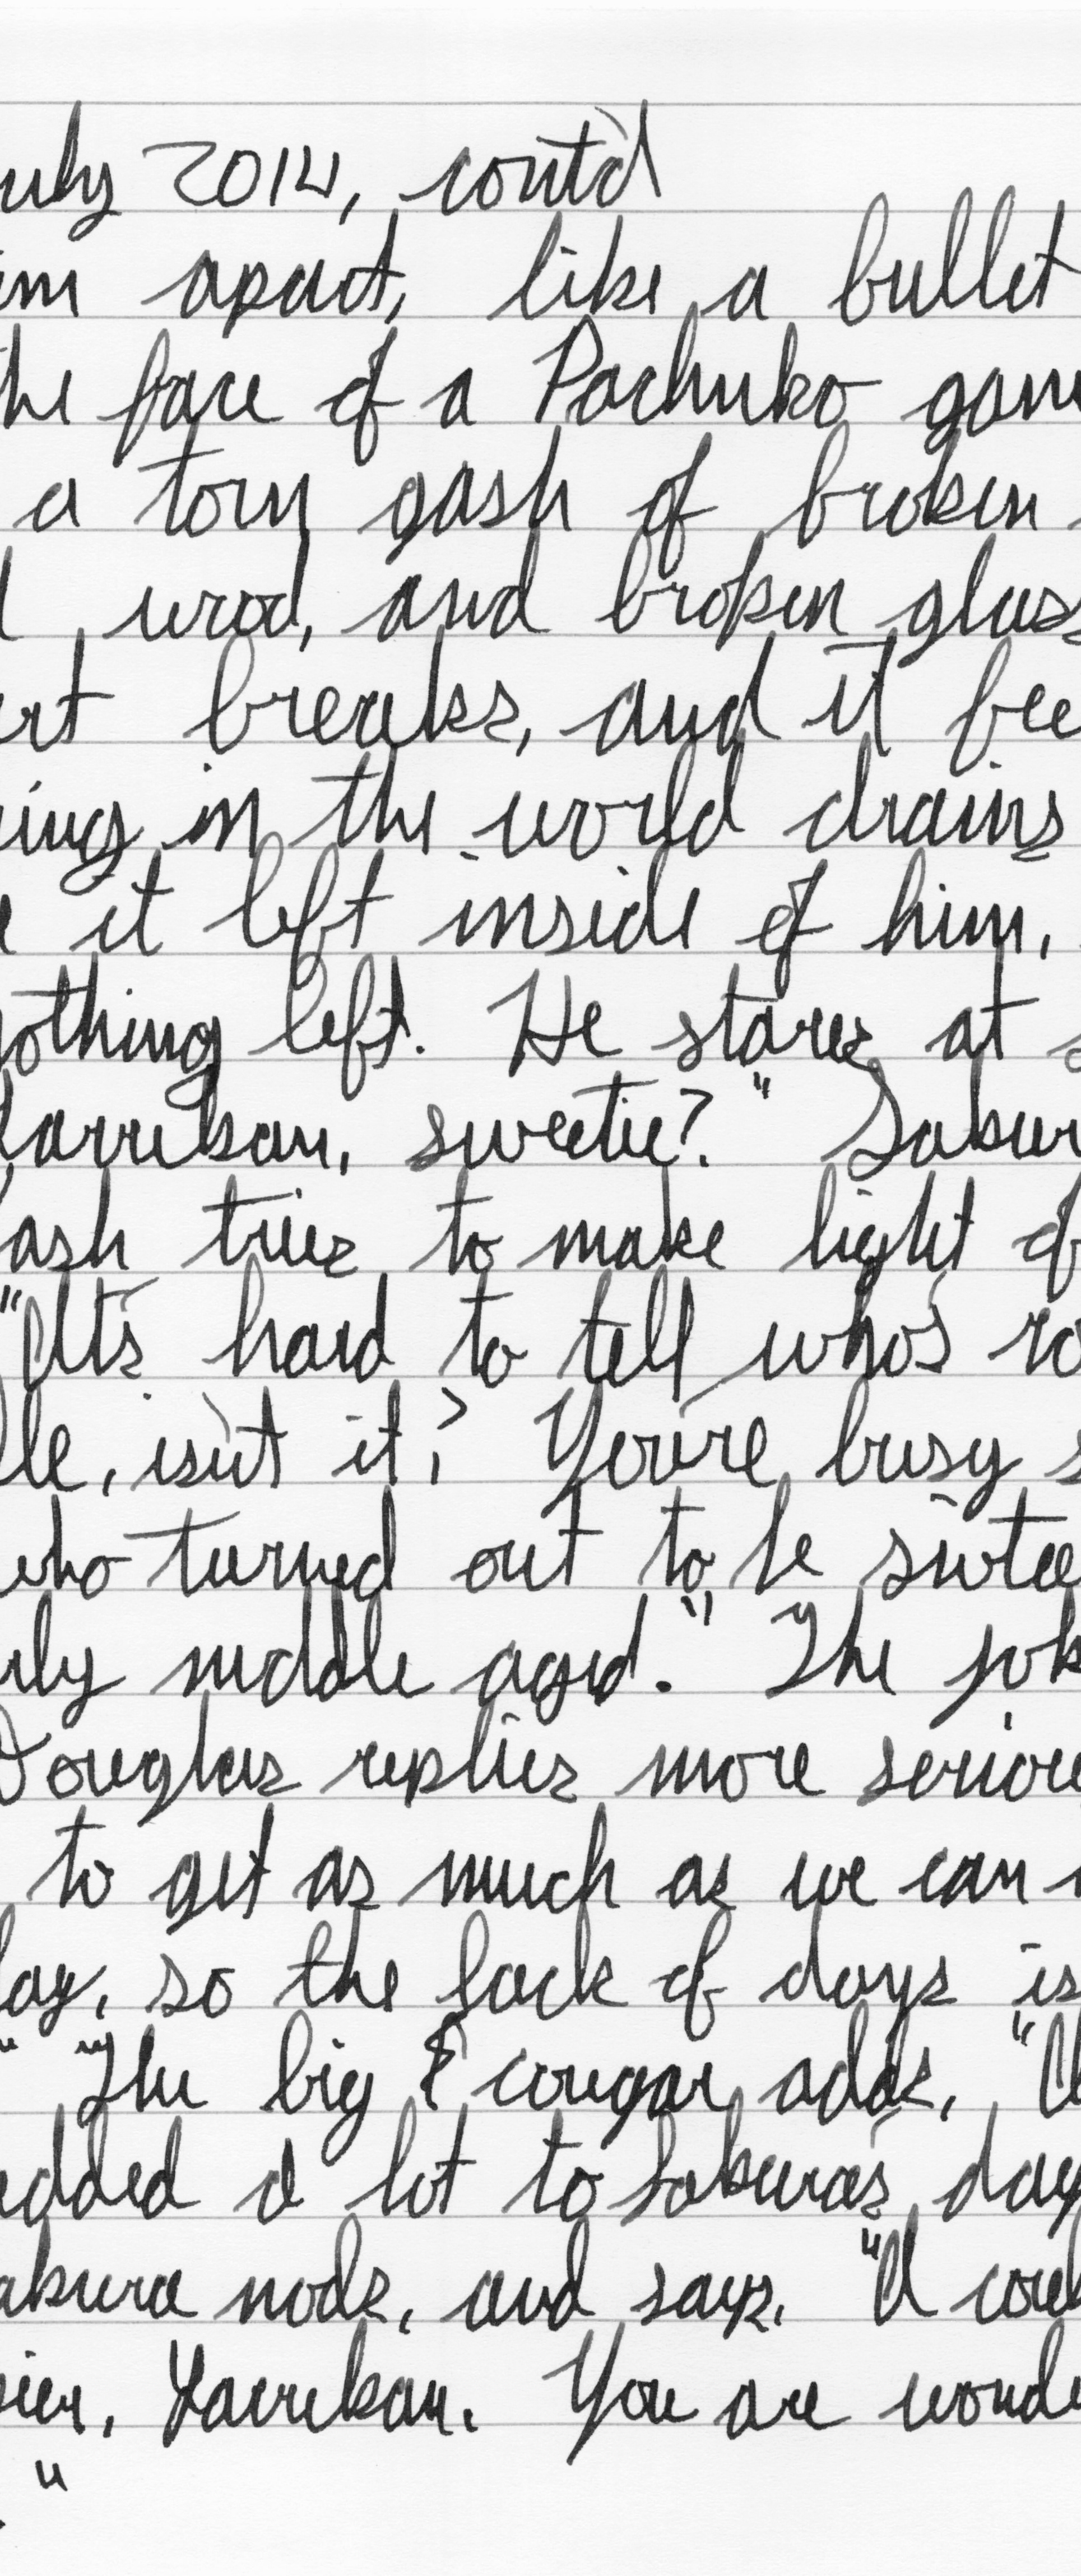 uly 2014, cont'd
im apart, like a bullet
the face of a Pachuko game
a torn gash of broken
d wood, and broken glass
art breaks, and it fee
ing in the world drains
e it left inside of him,
nothing left. He stares at s
Yarrekan, sweetie?" Sakur
ash tries to make light of
"It's hard to tell who's ro
le, isn't it? You're busy s
who turned out to be sixtee
rly middle aged." The jok
Douglas replies more seriou
to get as much as we can
lay, so the lack of days is
" "The big & cougar adds, "I
added a lot to Sakura's day
akura nods, and says, "I coul
ier, Yarrekan. You are wonde
."